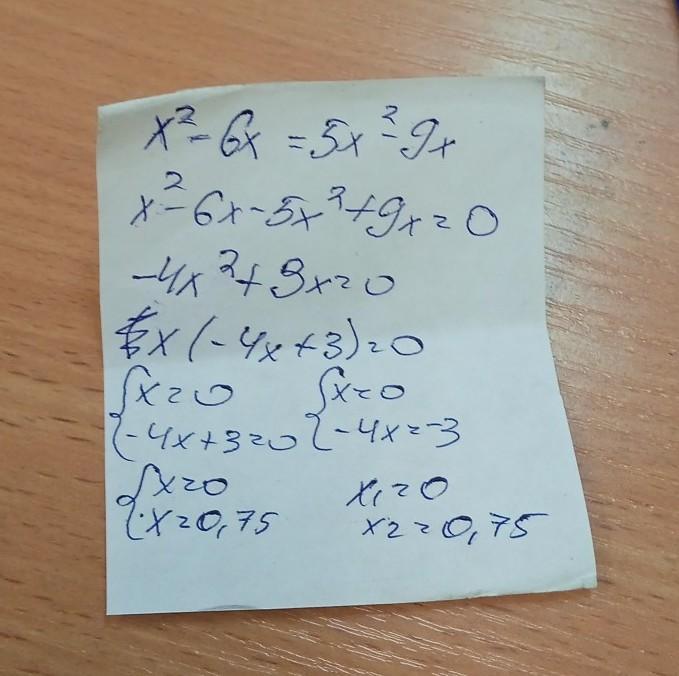 x² - 6x = 5x² - 9x
x² - 6x - 5x² + 9x = 0
-4x² + 3x = 0
x(-4x + 3) = 0
{x = 0 {x = 0
{-4x + 3 = 0 {-4x = -3
{x = 0 x₁ = 0
{x = 0,75 x₂ = 0,75